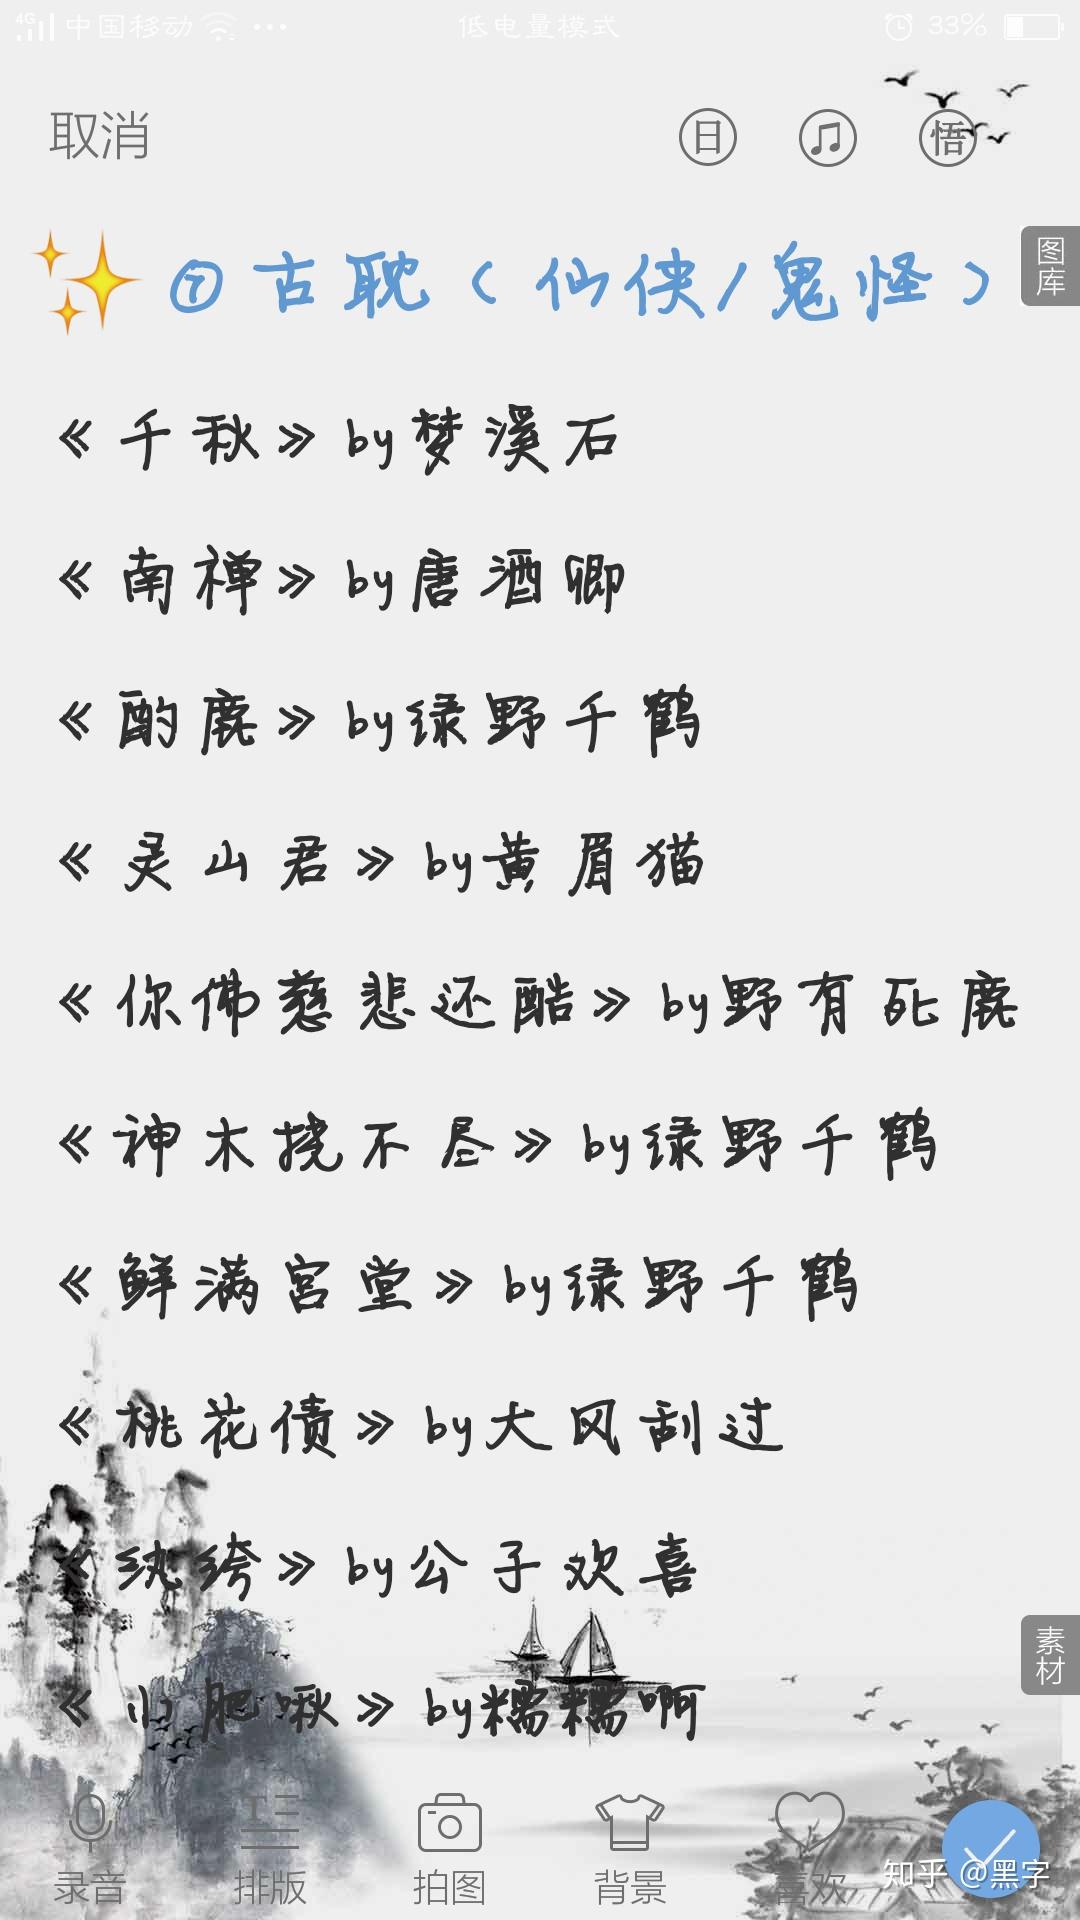 4G 中国移动 ••• 低电量模式 33%
取消 日 悟
图库
✨⑦古耽(仙侠/鬼怪)
《千秋》by梦溪石
《南禅》by唐酒卿
《酌鹿》by绿野千鹤
《灵山君》by黄眉猫
《你佛慈悲还酷》by野有死鹿
《神木挠不尽》by绿野千鹤
《鲜满宫堂》by绿野千鹤
《桃花债》by大风刮过
《纨绔》by公子欢喜
素材
《小肥啾》by糯糯啊
录音 排版 拍图 背景 喜欢
知乎 @黑字